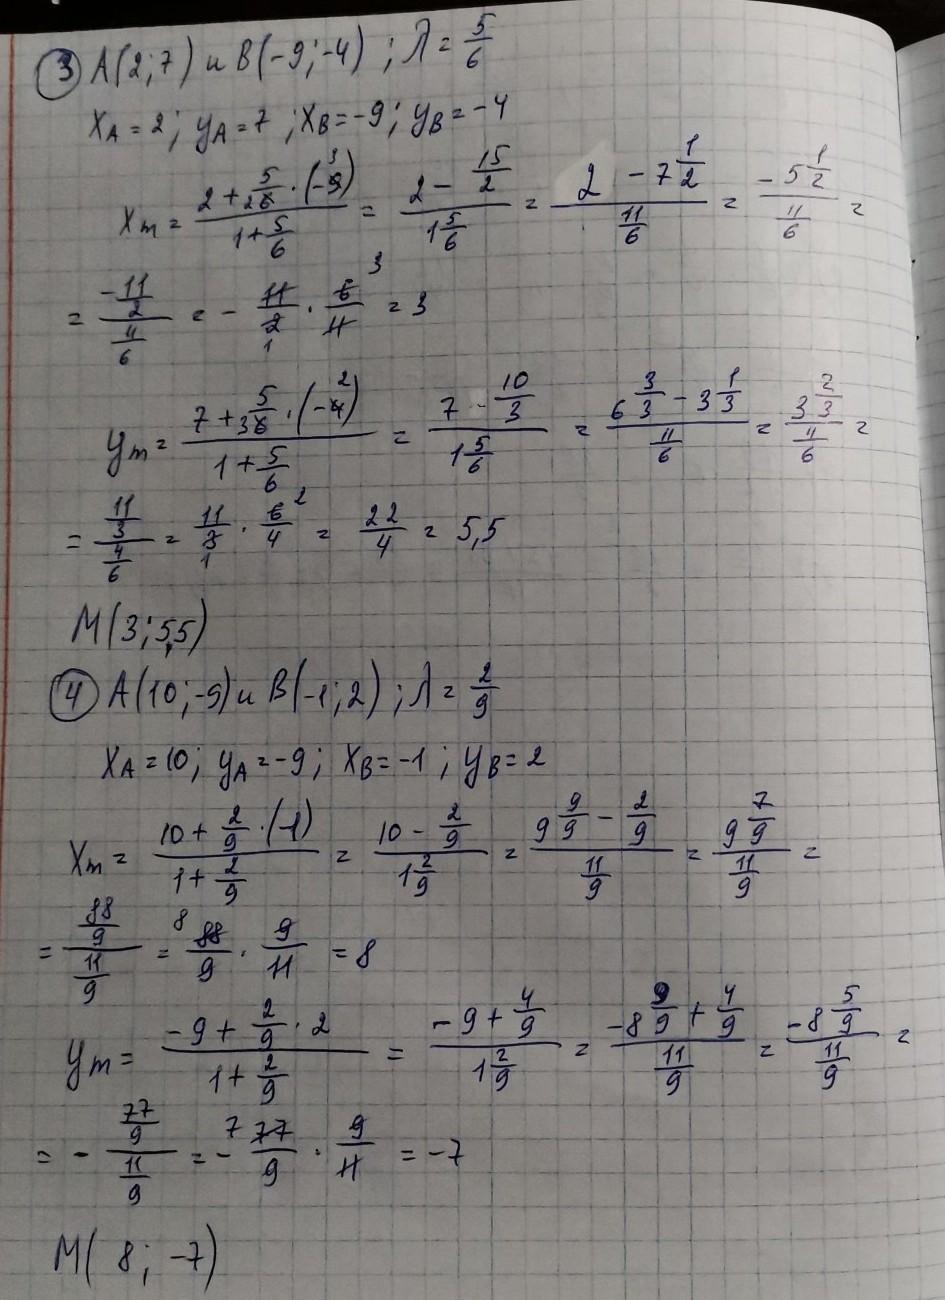 ③ A(2;7) и B(-9;-4) ; λ = 5/6
x_A = 2; y_A = 7; x_B = -9; y_B = -4
x_m = (2 + 5/6 · (-9))/(1 + 5/6) = (2 - 15/2)/(1 5/6) = (2 - 7 1/2)/(11/6) = (-5 1/2)/(11/6) =
= (-11/2)/(11/6) = - 11/2 · 6/11 = 3
y_m = (7 + 5/6 · (-4))/(1 + 5/6) = (7 - 10/3)/(1 5/6) = (6 3/3 - 3 1/3)/(11/6) = (3 2/3)/(11/6) =
= (11/3)/(4/6) = 11/3 · 6/4 = 22/4 = 5,5
M(3; 5,5)
④ A(10;-9) и B(-1;2) ; λ = 2/9
x_A = 10; y_A = -9; x_B = -1; y_B = 2
x_m = (10 + 2/9 · (-1))/(1 + 2/9) = (10 - 2/9)/(1 2/9) = (9 9/9 - 2/9)/(11/9) = (9 7/9)/(11/9) =
= (88/9)/(11/9) = 88/9 · 9/11 = 8
y_m = (-9 + 2/9 · 2)/(1 + 2/9) = (-9 + 4/9)/(1 2/9) = (-8 9/9 + 4/9)/(11/9) = (-8 5/9)/(11/9) =
= - (77/9)/(11/9) = - 77/9 · 9/11 = -7
M( 8; -7)